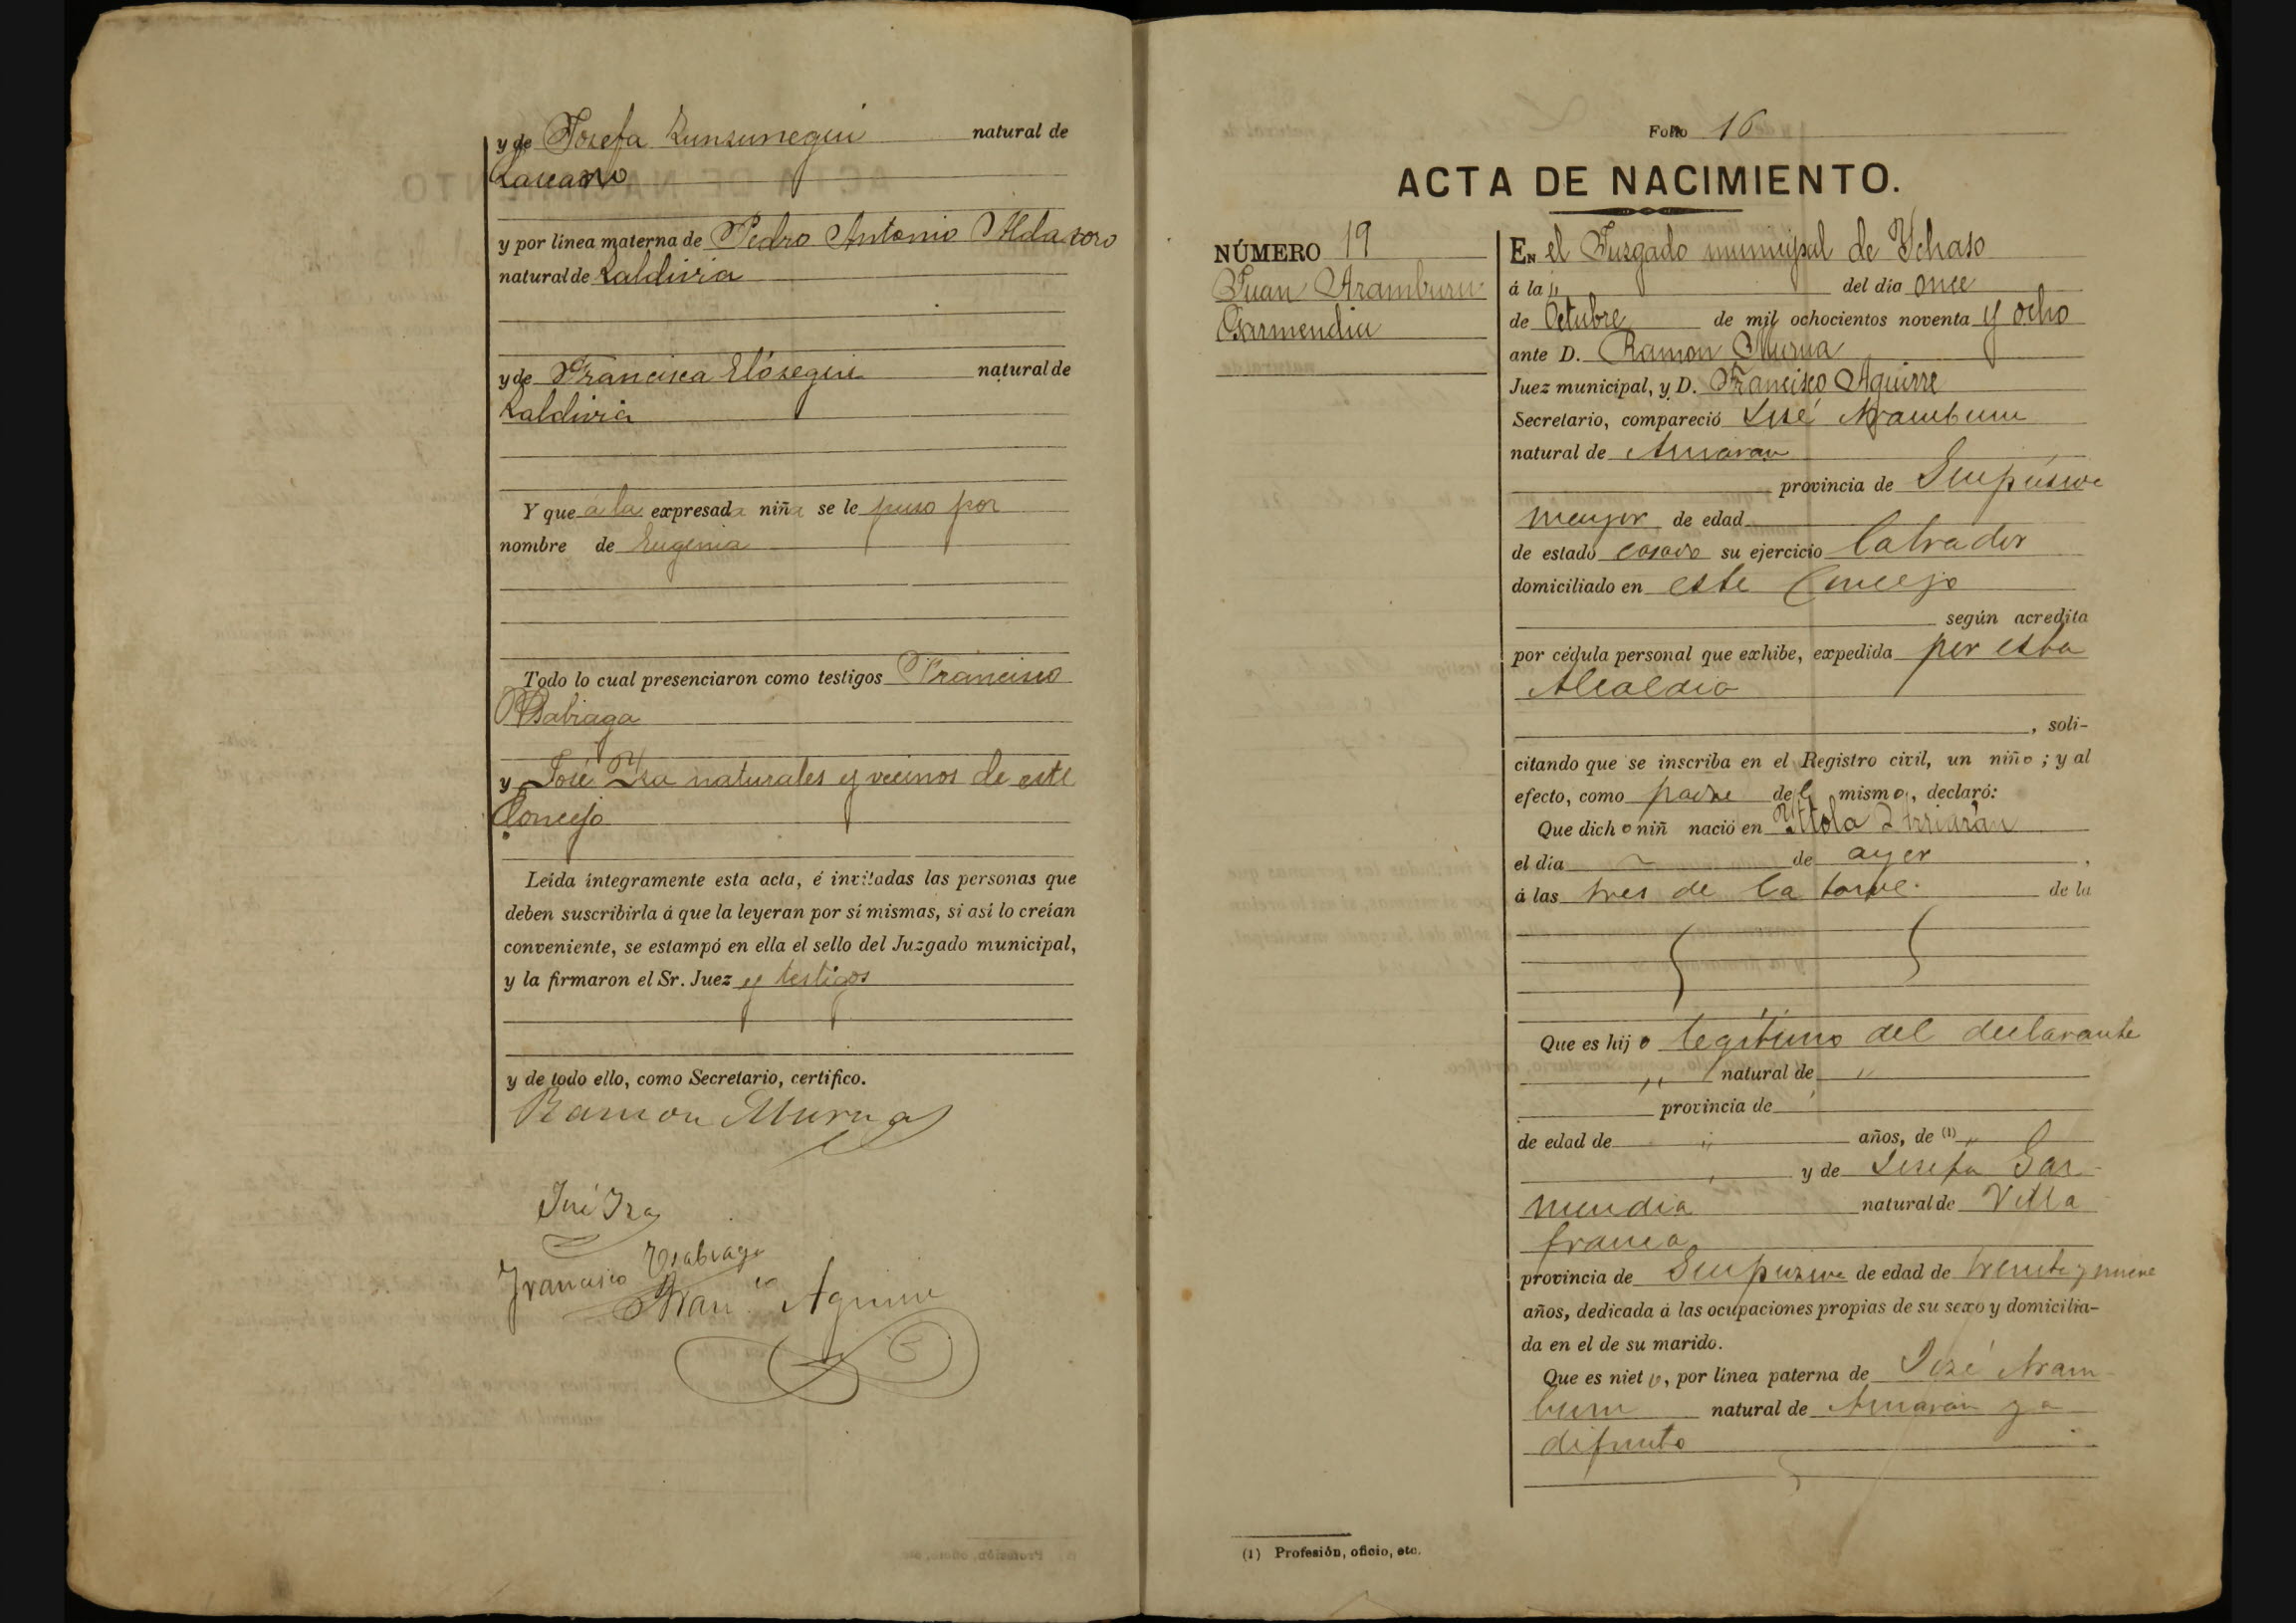 y de Josefa Zunzunegui natural de
Lazcano
y por línea materna de Pedro Antonio Aldasoro
natural de Zaldivia
y de Francisca Elósegui natural de
Zaldivia
Y que á la expresada niña se le puso por
nombre de Eugenia
Todo lo cual presenciaron como testigos Francisco
Ysabiaga
y José Yza naturales y vecinos de este
Concejo
Leída íntegramente esta acta, é invitadas las personas que
deben suscribirla á que la leyeran por sí mismas, si así lo creían
conveniente, se estampó en ella el sello del Juzgado municipal,
y la firmaron el Sr. Juez y testigos
y de todo ello, como Secretario, certifico.
Ramon Murua
José Iza
Francisco Ysabiaga
Fran.co Aguirre
Folio 16
ACTA DE NACIMIENTO.
NÚMERO 19
Juan Aramburu
Garmendia
EN el Juzgado municipal de Ychaso
á la " del día once
de Octubre de mil ochocientos noventa y ocho
ante D. Ramon Murua
Juez municipal, y D. Francisco Aguirre
Secretario, compareció José Aramburu
natural de Arriaran
provincia de Guipúzcoa
mayor de edad
de estado casado su ejercicio labrador
domiciliado en este Concejo
según acredita
por cédula personal que exhibe, expedida por esta
Alcaldia
, soli-
citando que se inscriba en el Registro civil, un niño; y al
efecto, como padre del mismo, declaró:
Que dicho niñ nació en Arriaran
el día de ayer,
á las tres de la tarde. de la
Que es hijo legítimo del declarante
" natural de "
provincia de "
de edad de " años, de (1) "
" y de Josefa Gar-
mendia natural de Villa
franca
provincia de Guipuzcoa de edad de treinta y nueve
años, dedicada á las ocupaciones propias de su sexo y domicilia-
da en el de su marido.
Que es nieto, por línea paterna de José Aram-
buru natural de Arriarán ya
difunto
(1) Profesión, oficio, etc.